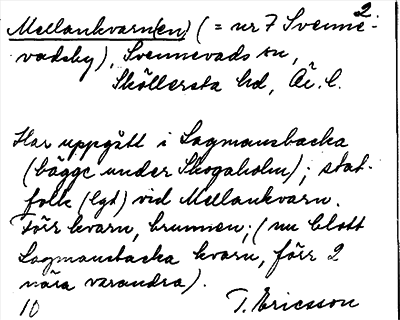 2.
Mellankvarn(en) (= nr 7 Svenne-
vadsby), Svennevads sn,
Sköllersta hd, Ä. l.
Har uppgått i Lagmansbacka
(bägge under Skogaholm); stat-
folk (lgt) vid Mellankvarn.
Förr kvarn, brunnen; (nu blott
Lagmansbacka kvarn, förr 2
nära varandra).
10 T. Ericsson